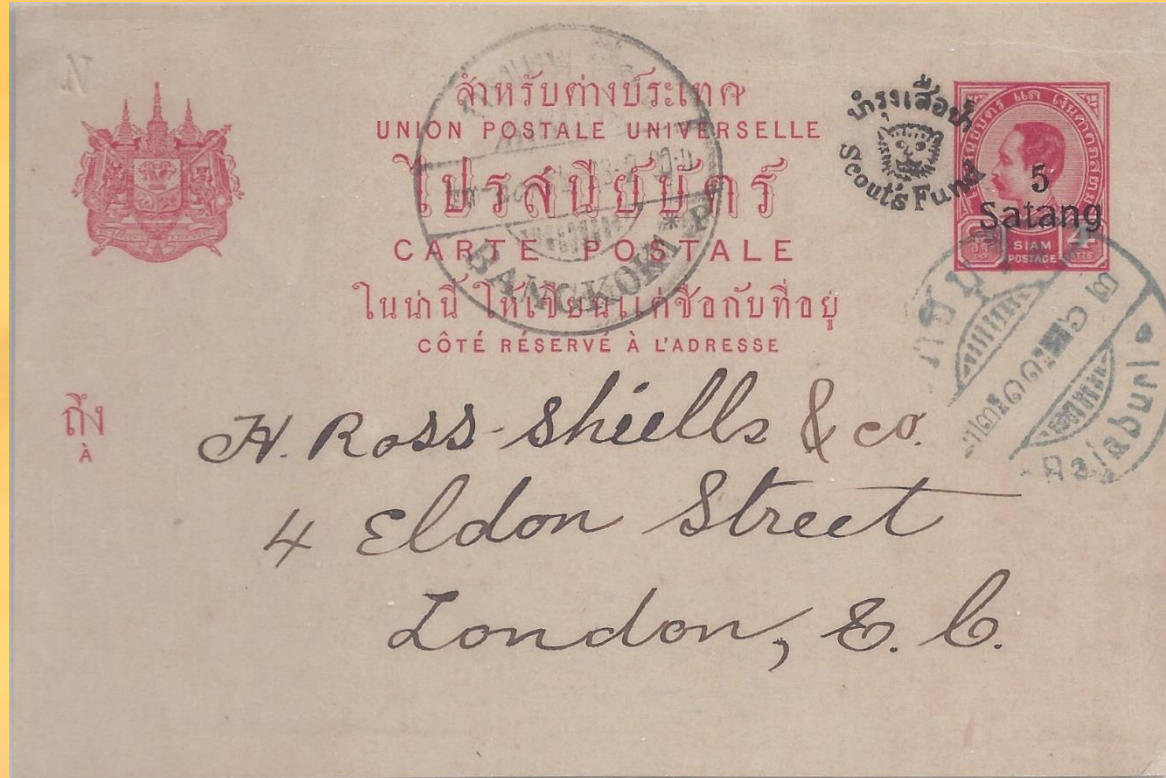 สำหรับต่างประเทศ
UNION POSTALE UNIVERSELLE
ไปรสนียบัตร์
CARTE POSTALE
ในน่านี้ ให้เขียนแต่ชื่อกับที่อยู่
CÔTÉ RÉSERVÉ À L'ADRESSE
บำรุงเสือป่า
Scout's Fund
5
Satang
SIAM
POSTAGE
BANGKOK
Rajaburi
ถึง
À
H. Ross Shiells & co.
4 Eldon Street
London, E. C.